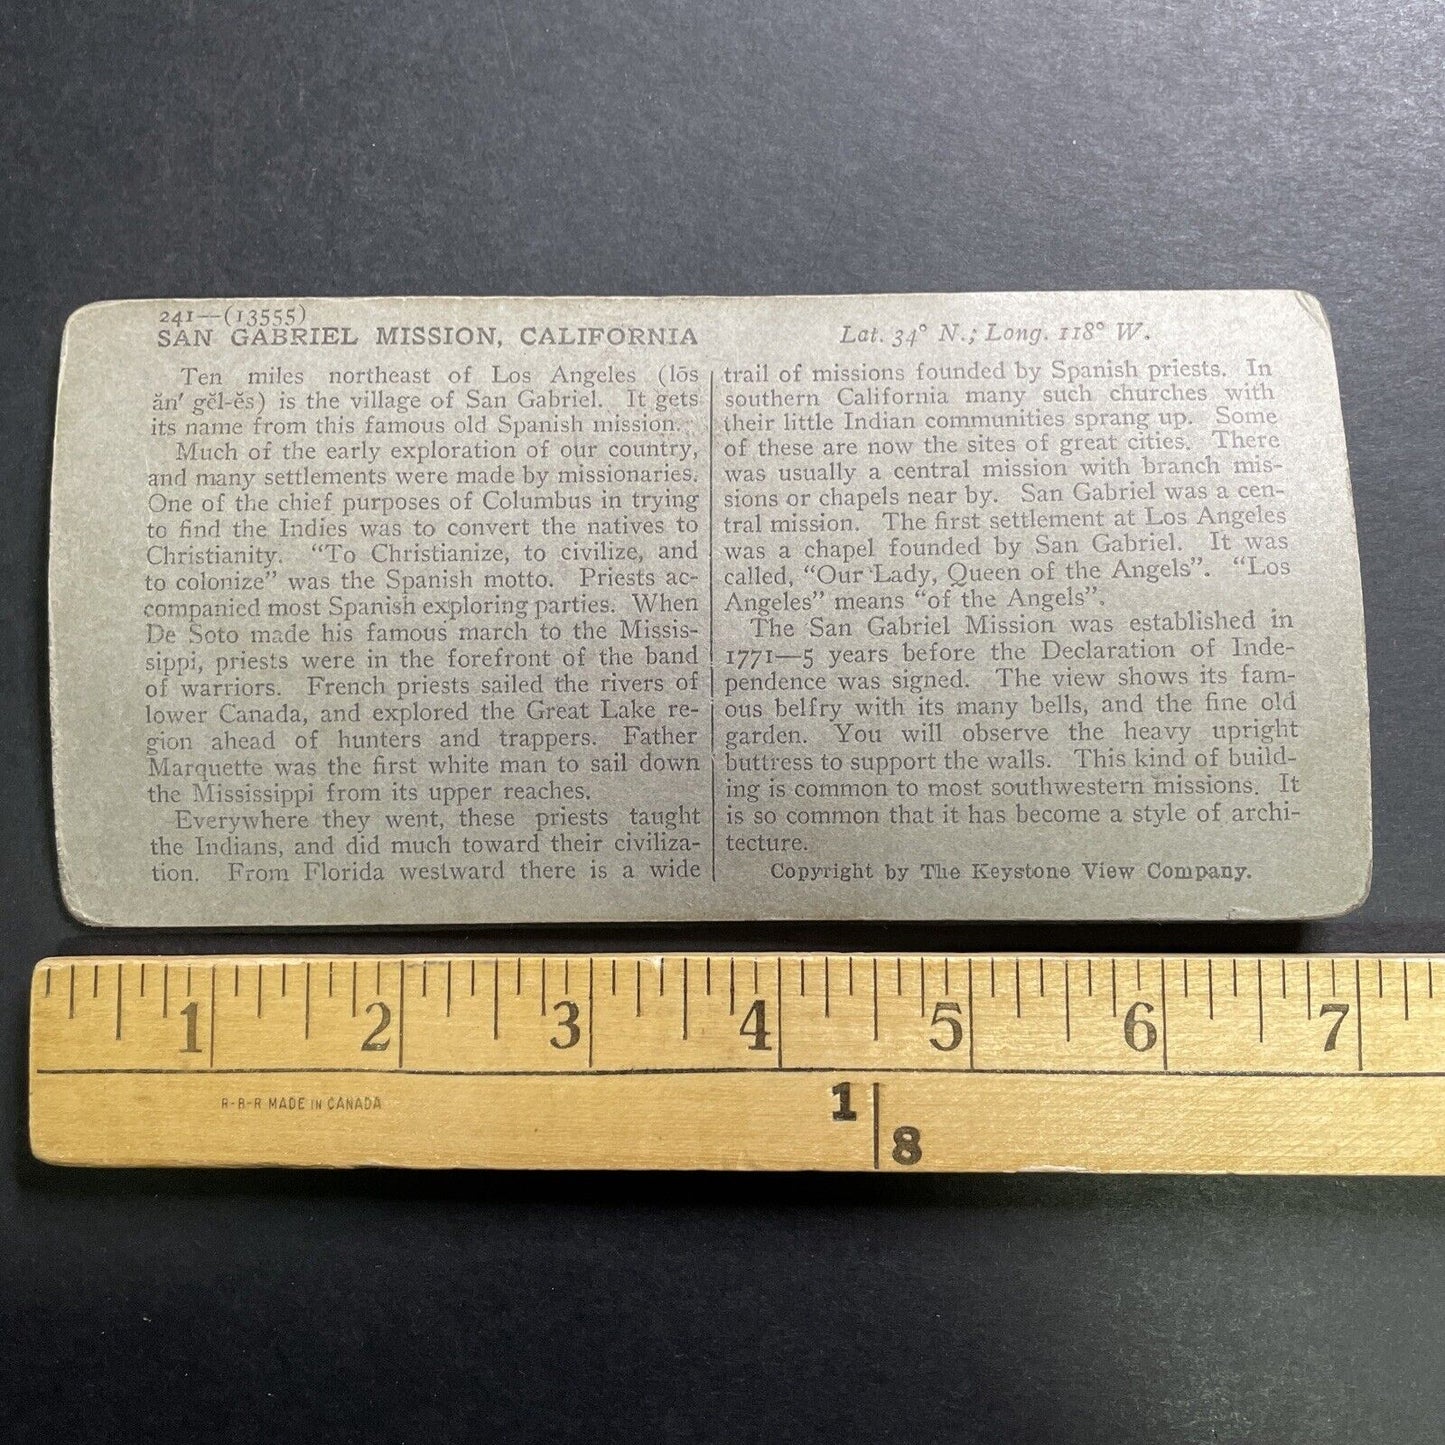 241—(13555)
SAN GABRIEL MISSION, CALIFORNIA
Lat. 34° N.; Long. 118° W.
Ten miles northeast of Los Angeles (lōs
ăn′ gĕl-ĕs) is the village of San Gabriel. It gets
its name from this famous old Spanish mission.
Much of the early exploration of our country,
and many settlements were made by missionaries.
One of the chief purposes of Columbus in trying
to find the Indies was to convert the natives to
Christianity. “To Christianize, to civilize, and
to colonize” was the Spanish motto. Priests ac-
companied most Spanish exploring parties. When
De Soto made his famous march to the Missis-
sippi, priests were in the forefront of the band
of warriors. French priests sailed the rivers of
lower Canada, and explored the Great Lake re-
gion ahead of hunters and trappers. Father
Marquette was the first white man to sail down
the Mississippi from its upper reaches.
Everywhere they went, these priests taught
the Indians, and did much toward their civiliza-
tion. From Florida westward there is a wide
trail of missions founded by Spanish priests. In
southern California many such churches with
their little Indian communities sprang up. Some
of these are now the sites of great cities. There
was usually a central mission with branch mis-
sions or chapels near by. San Gabriel was a cen-
tral mission. The first settlement at Los Angeles
was a chapel founded by San Gabriel. It was
called, “Our Lady, Queen of the Angels”. “Los
Angeles” means “of the Angels”.
The San Gabriel Mission was established in
1771—5 years before the Declaration of Inde-
pendence was signed. The view shows its fam-
ous belfry with its many bells, and the fine old
garden. You will observe the heavy upright
buttress to support the walls. This kind of build-
ing is common to most southwestern missions. It
is so common that it has become a style of archi-
tecture.
Copyright by The Keystone View Company.
1 2 3 4 5 6 7
R-B-R MADE IN CANADA
1
8